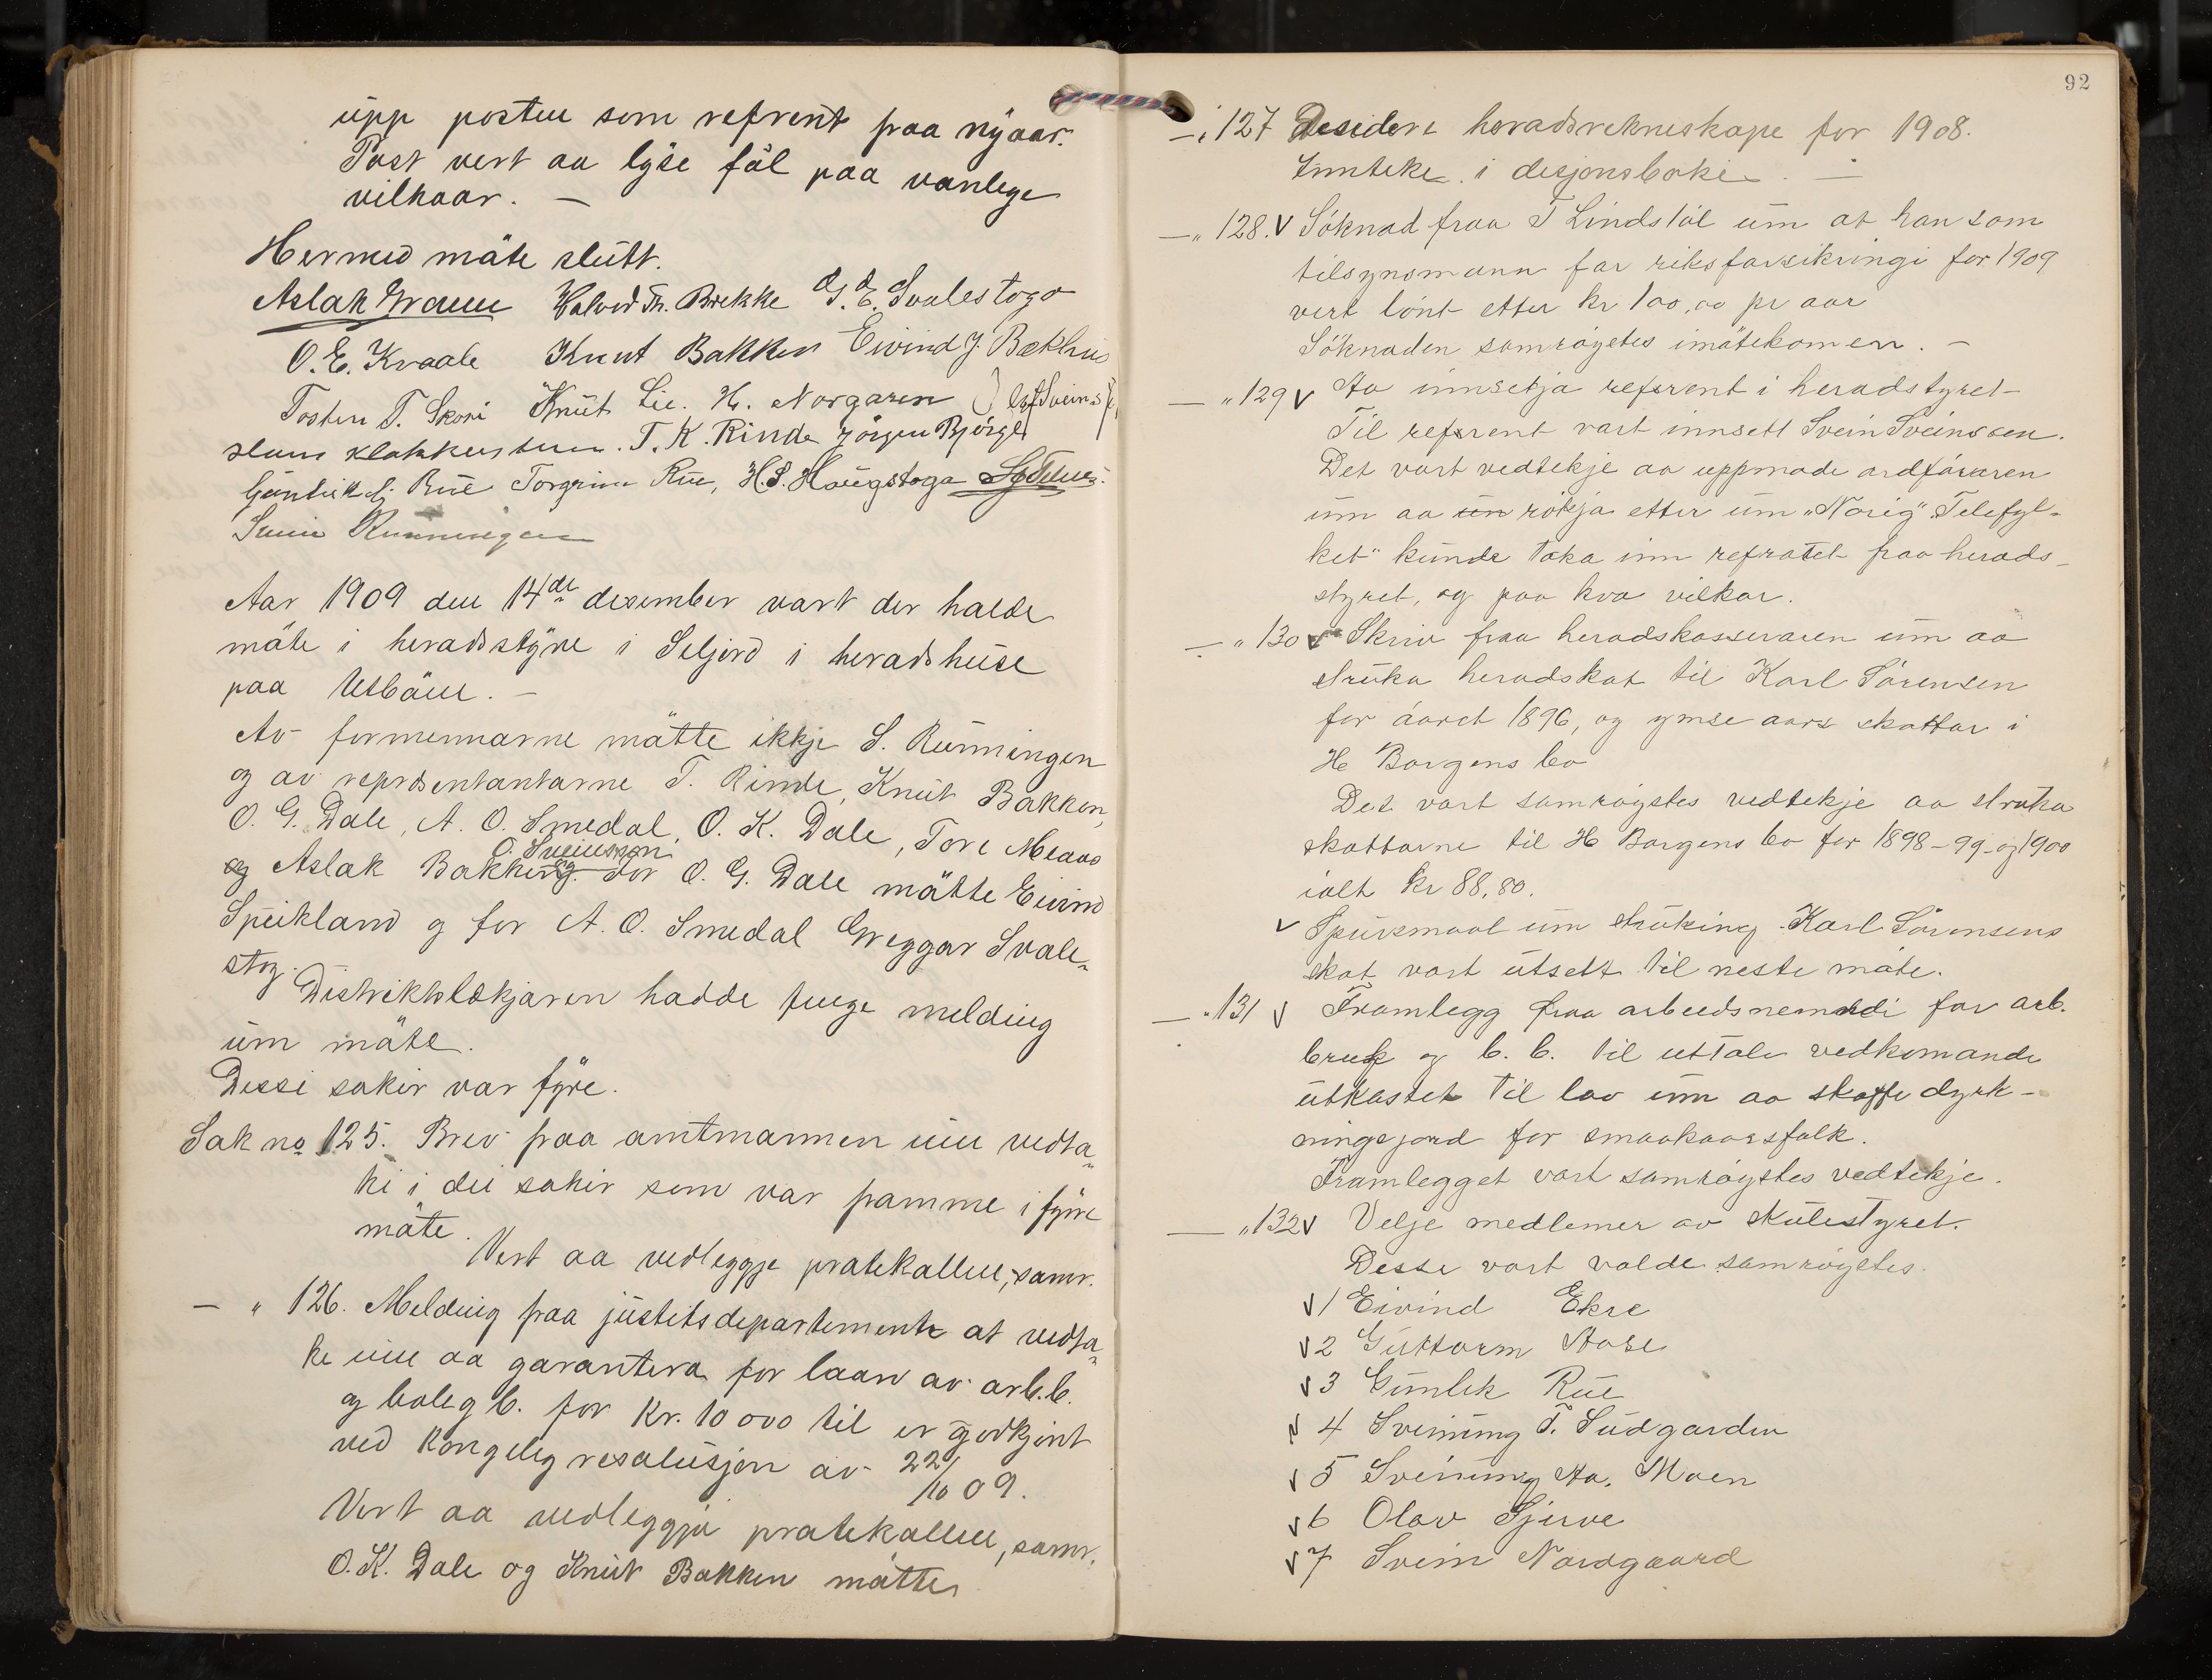 upp posten som refrent fraa nyaar.
Post vert aa lyse fäl paa vanlege
vilkaar. —
Hermed mäte slutt.
Aslak Graue Halvord Th. Brekke G. E. Svalestogo
O. E. Kvaale Knut Bakken Eivind J. Bækhus
Tosten T. Skori Knut Lie. H. Norgaren Olaf Sveinss
T. K. Rinde Jörgen Björge
Gunleik Rue Torgrim Rue, H.S. Haugstoga
Svein Runningen
Aar 1909 den 14de desember vart der halde
mäte i heradsstyre i Seljord i heradshuse
paa Utbäen. —
Av formennarne mätte ikkje S. Runningen
og av representantarne T. Rinde, Knut Bakken,
O. G. Dale, A. O. Smedal, O. K. Dale, Tore Meaas
O. Sveinsson
og Aslak Bakken. For O. G. Dale mätte Eivind
Speikland og for A. O. Smedal Greggar Svale-
stog.
Distriktslækjaren hadde fenge melding
um mäte.
Dessi sakir var fyre.
Sak no 125. Brev fraa amtmannen um vedta-
ki i dei sakir som var framme i fyrre
mäte.
Vert aa vedleggje protekallen, samr.
— " 126. Melding fraa justitsdepartemente at vedta-
ke um aa garantera for laan av arb.b.
og bolegb. for Kr. 10000 til er godkjent
ved kongeleg resolusjon av 22/10 09.
Vert aa vedleggja protekallen, samr.
O.K. Dale og Knut Bakken mätte
92
— " 127 Desidere heradsrekneskape for 1908.
Innteke i desjonsboki. —
— " 128. V Söknad fraa T Lindstöl um at han som
tilsynsmann for riksforsikringi for 1909
vert lönt etter kr 100,00 pr aar
Söknaden samröystes imötekomen. —
— " 129 V Aa innsetja referent i heradstyret
Til refrent vart innsett Svein Sveinssen.
Det vart vedtekje aa uppmode ordföraren
um aa un rökja etter um "Norig" "Telefyl-
ket" kunde taka inn refratet fraa herads-
styret, og paa kva vilkor.
— " 130 V Skriv fraa heradskasseraren um aa
struka heradskat til Karl Sörensen
for aaret 1896, og ymse aars skattar i
H Borgens bo
Det vart samröystes vedtekje aa struka
skattarne til H Borgens bo for 1898-99-og 1900
ialt kr 88,80.
V Spursmaal um struking Karl Sörensens
skat vart utsett til neste möte.
— " 131 V Framlegg fraa arbeidsnemndi for arb.
bruk og b. b. til uttale vedkomande
utkastet til lov um aa skaffe dyrk-
ningsjord for smaakaarsfolk.
Framlegget vart samröystes vedtekje.
— " 132 V Velje medlemer av skulestyret.
Desse vart valde samröystes.
V 1 Eivind Ekre
V 2 Guttorm Aase
V 3 Gunlek Rue
V 4 Sveinung T. Sudgarden
V 5 Sveinung Aa. Moen
V 6 Olav Sjuve
V 7 Svein Nordgaard